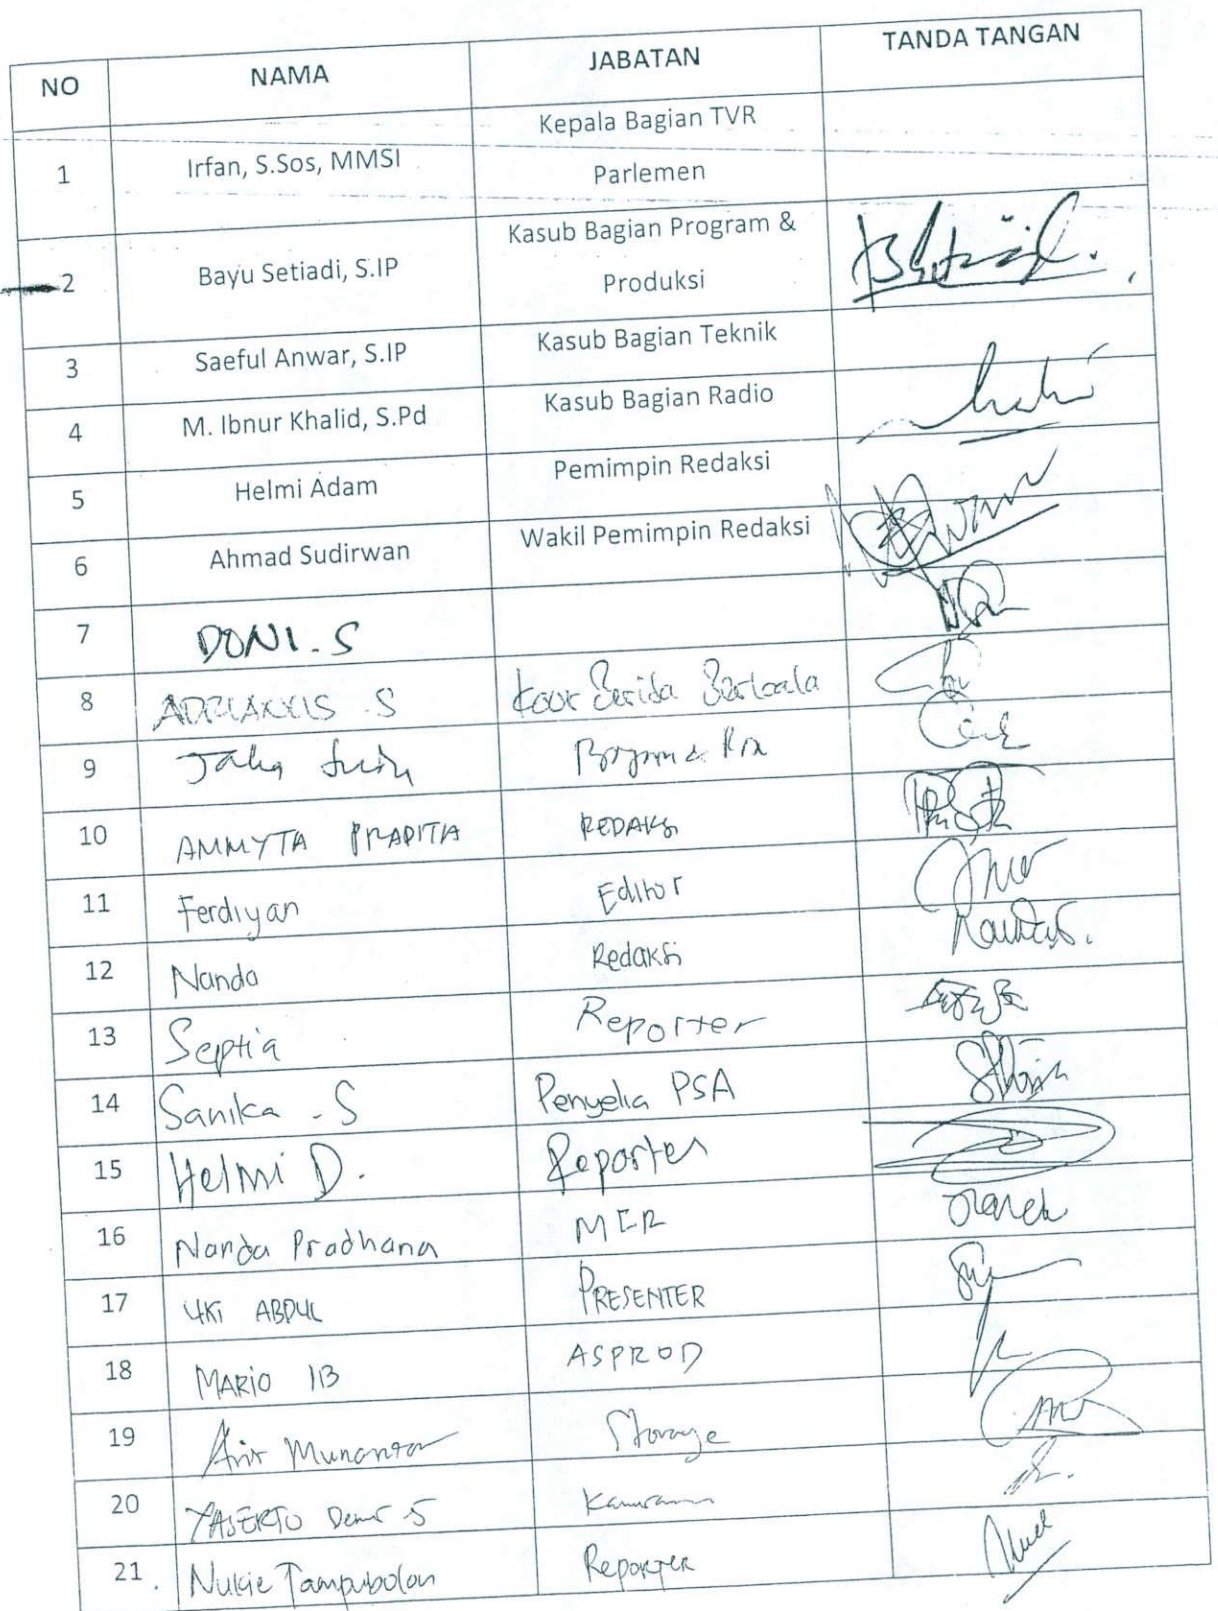 NO NAMA JABATAN TANDA TANGAN
1 Irfan, S.Sos, MMSI Kepala Bagian TVR
Parlemen
2 Bayu Setiadi, S.IP Kasub Bagian Program &
Produksi
3 Saeful Anwar, S.IP Kasub Bagian Teknik
4 M. Ibnur Khalid, S.Pd Kasub Bagian Radio
5 Helmi Adam Pemimpin Redaksi
6 Ahmad Sudirwan Wakil Pemimpin Redaksi
7 DONI.S
8 S Koor Berita
9 Jaka
10 AMMYTA PRADITIA REDAKSI
11 Ferdiyan Editor
12 Nanda Redaksi
13 Septia Reporter
14 Sanika .S Penyelia PSA
15 Helmi D. Reporter
16 Nanda Pradhana MCR
17 UKI ABDUL PRESENTER
18 MARIO IB ASPROD
19 Munantar Storage
20 YASERTO
21. Nukie Tampubolon Reporter